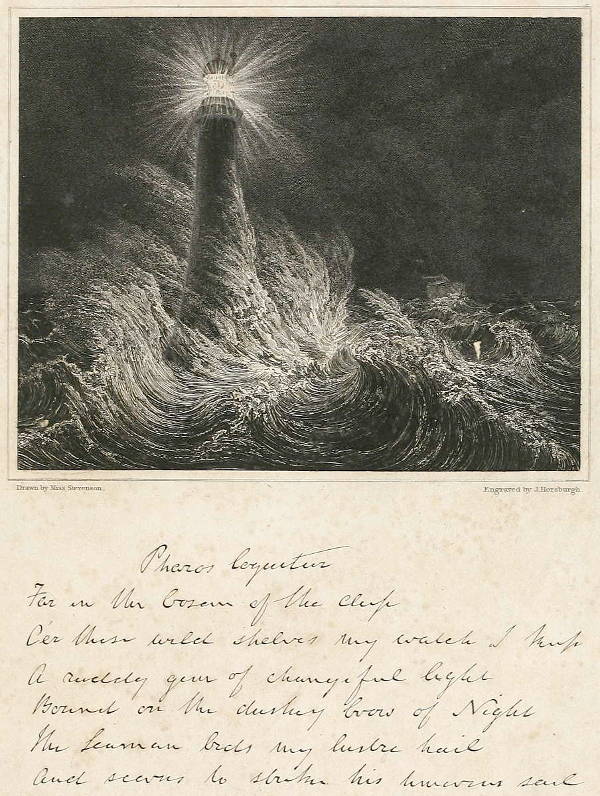 Drawn by Miss Stevenson.
Engraved by J. Horsburgh.
Pharos loquitur
Far in the bosom of the deep
O'er these wild shelves my watch I keep
A ruddy gem of changeful light
Bound on the duskey brow of Night
The Seaman bids my lustre hail
And scorns to strike his timorous sail